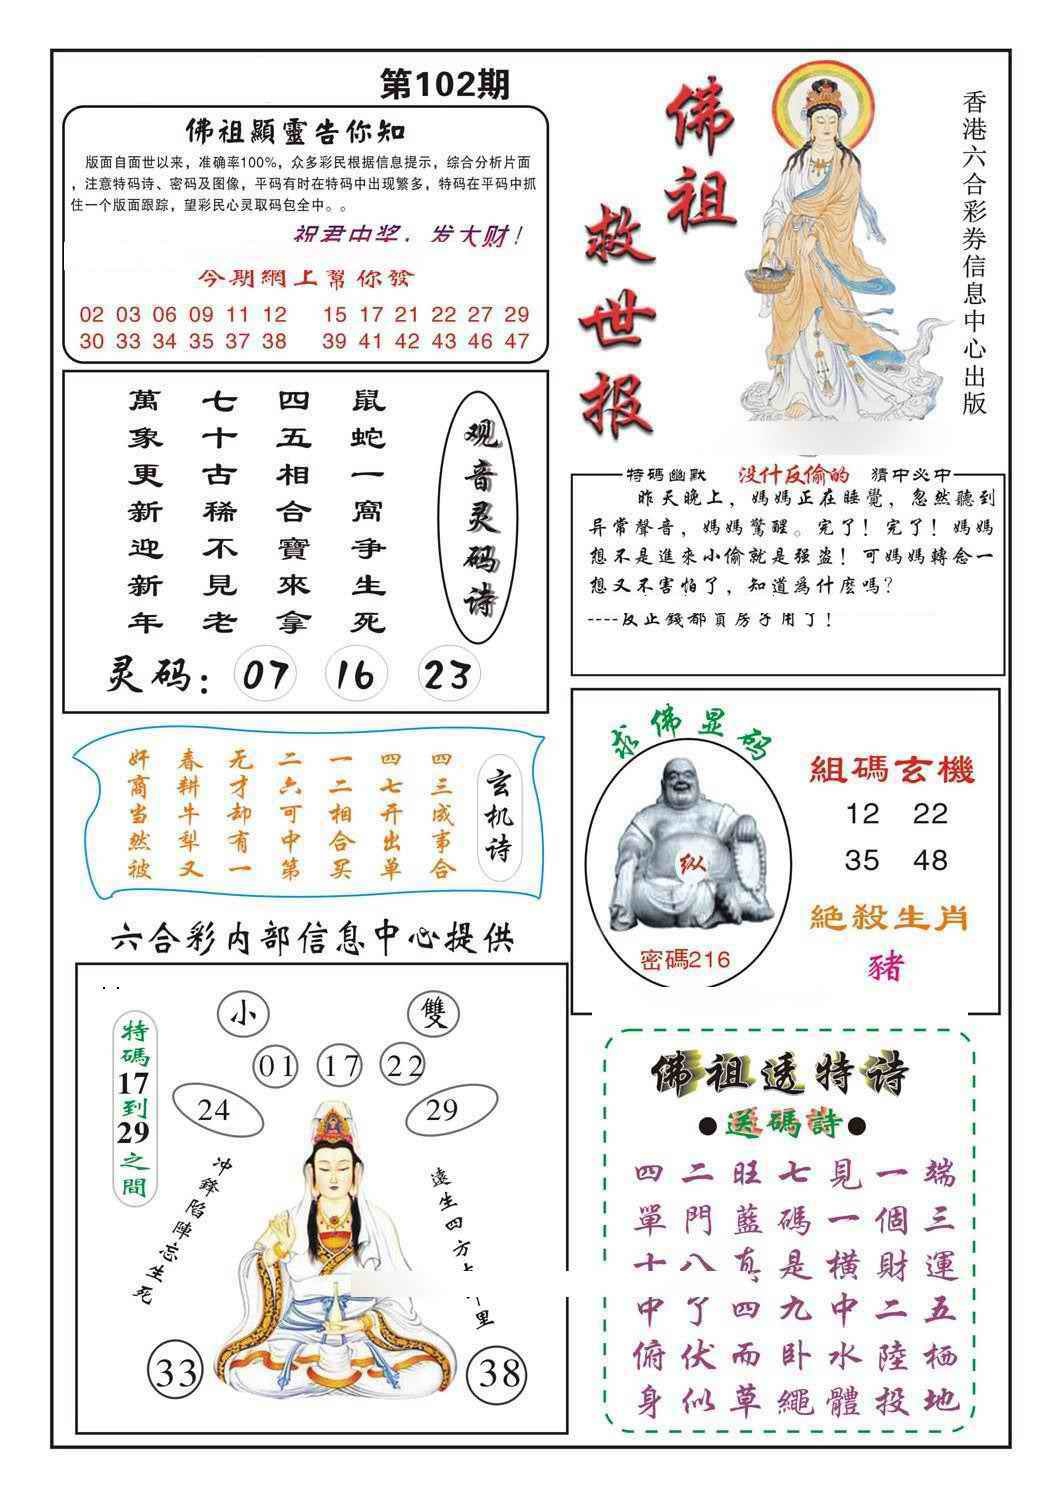 第102期
佛祖顯靈告你知
版面自面世以来，准确率100%，众多彩民根据信息提示，综合分析片面
，注意特码诗、密码及图像，平码有时在特码中出现繁多，特码在平码中抓
住一个版面跟踪，望彩民心灵取码包全中。。
祝君中奖，发大财！
今期網上幫你發
02 03 06 09 11 12 15 17 21 22 27 29
30 33 34 35 37 38 39 41 42 43 46 47
佛祖
救世报
香港六合彩券信息中心出版
观音灵码诗
鼠蛇一窩争生死
四五相合寶來拿
七十古稀不見老
萬象更新迎新年
灵码：07 16 23
特碼幽默 没什反偷的 猜中必中
昨天晚上，媽媽正在睡覺，忽然聽到
异常聲音，媽媽驚醒。完了！完了！媽媽
想不是進來小偷就是强盗！可媽媽轉念一
想又不害怕了，知道爲什麼嗎？
----反正錢都買房子用了！
玄机诗
四三成事合
四七开出单
一二相合买
二六可中第
无才却有一
春耕牛犁又
奸商当然被
求佛显码
纵
密碼216
組碼玄機
12 22
35 48
絶殺生肖
豬
六合彩内部信息中心提供
特碼17到29之間
小 雙
01 17 22
24 29
冲鋒陷陣忘生死
遠生四方
里
33 38
佛祖透特诗
●送碼詩●
端三運五栖地
一個財二陸投
見一横中水體
七碼是九卧繩
旺藍真四而草
二門八了伏似
四單十中俯身